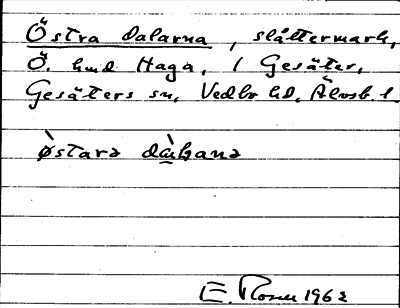 Östra Dalarna, slåttermark,
Ö. hmd Haga, 1 Gesäter,
Gesäters sn, Vedbo hd, Älvsb. l.
E. Rosen 1962